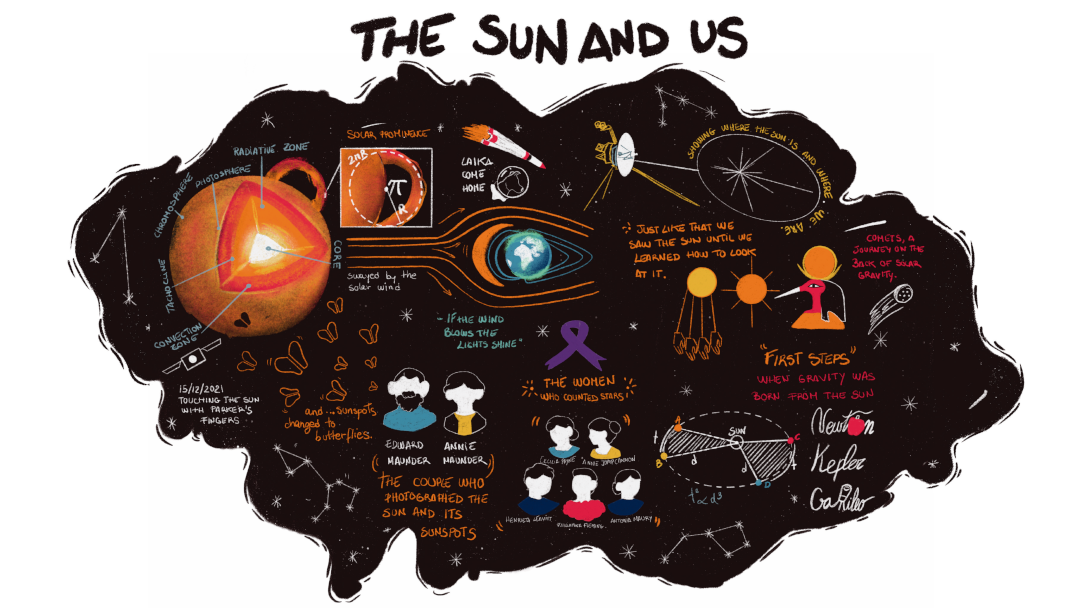 THE SUN AND US
RADIATIVE ZONE
PHOTOSPHERE
CHROMOSPHERE
TACHOCLINE
CONVECTION
ZONE
CORE
SOLAR PROMINENCE
2πB
π
R
LAIKA
COME
HOME
SHOWING WHERE THE SUN IS AND WHERE WE ARE.
swayed by the
solar wind
- IF THE WIND
BLOWS THE
LIGHTS SHINE"
JUST LIKE THAT WE
SAW THE SUN UNTIL WE
LEARNED HOW TO LOOK
AT IT.
COMETS, A
JOURNEY ON THE
BACK OF SOLAR
GRAVITY.
15/12/2021
TOUCHING THE SUN
WITH PARKER'S
FINGERS
"and... sunspots
changed to
butterflies.
EDWARD
MAUNDER
ANNIE
MAUNDER
THE COUPLE WHO
PHOTOGRAPHED THE
SUN AND ITS
SUNSPOTS
THE WOMEN
WHO COUNTED STARS
CECILIA PAYNE
ANNIE JUMP CANNON
HENRIETA LEAVITT
WILLIAMINA FLEMING
ANTONIA MAURY
"FIRST STEPS"
WHEN GRAVITY WAS
BORN FROM THE SUN
A
B
C
D
t
t
d
d
SUN
t² ∝ d³
Newton
Kepler
Galileo